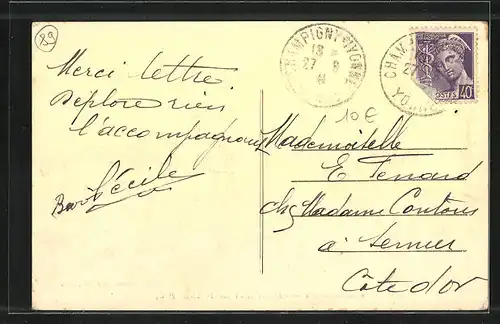 89
CHAMPIGNY YONNE
18
27 8
41
CHAM
27
YONNE
POSTES 40
10 €
Merci lettre.
Déplore rien
l'accompagnant
Cécile
Mademoiselle
E Fenard
chez Madame Coutous
à Semur
Côte d'or